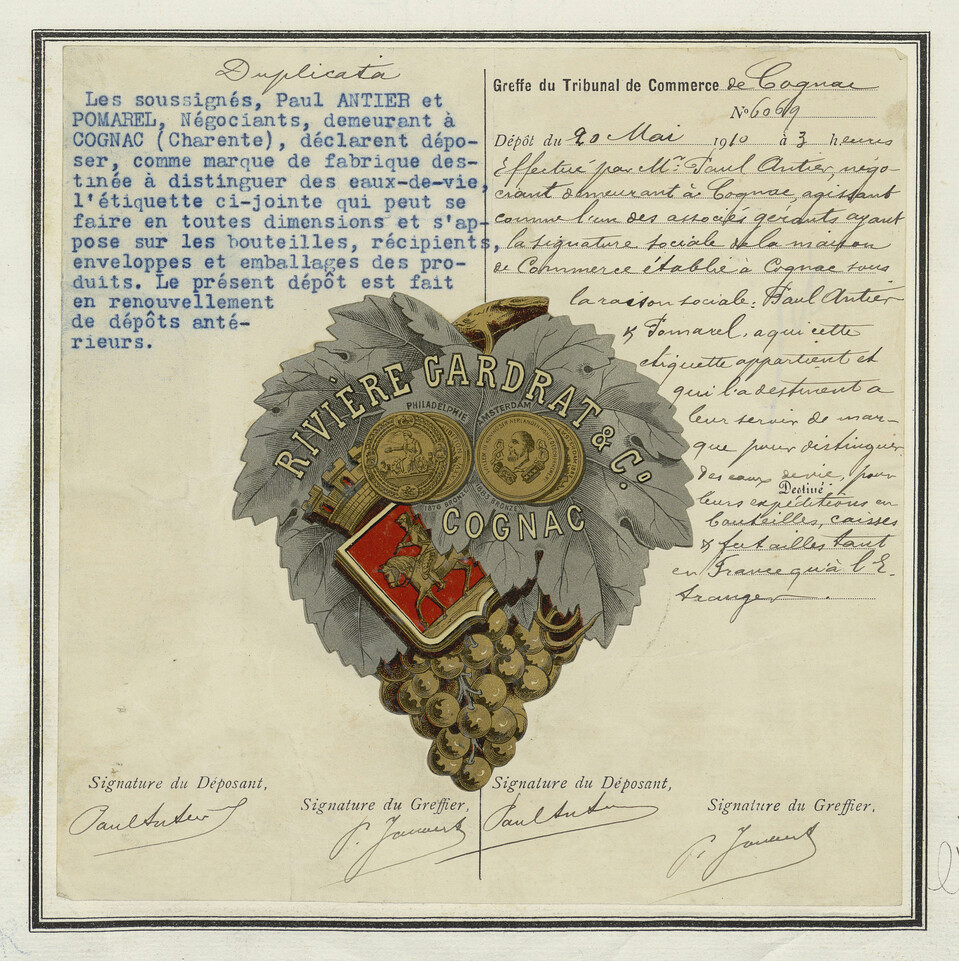 Duplicata
Les soussignés, Paul ANTIER et
POMAREL, Négociants, demeurant à
COGNAC (Charente), déclarent dépo-
ser, comme marque de fabrique des-
tinée à distinguer des eaux-de-vie,
l'étiquette ci-jointe qui peut se
faire en toutes dimensions et s'ap-
pose sur les bouteilles, récipients,
enveloppes et emballages des pro-
duits. Le présent dépôt est fait
en renouvellement
de dépôts anté-
rieurs.
Greffe du Tribunal de Commerce de Cognac
No 6069
Dépôt du 20 Mai 1910 à 3 heures
Effectué par Mr Paul Antier, négo-
ciant demeurant à Cognac, agissant
comme l'un des associés gérants ayant
la signature sociale de la maison
de Commerce établie à Cognac sous
la raison sociale: Paul Antier
& Pomarel, a qui cette
étiquette appartient et
qui l'a destinent a
leur servir de mar-
que pour distinguer
des eaux de vie, pour
Destiné à
leurs expéditions en
bouteilles, caisses
& futailles tant
en France qu'à l'E-
tranger.
RIVIÈRE GARDRAT & Co.
PHILADELPHIE AMSTERDAM
1876 BRONZE 1883 BRONZE
COGNAC
Signature du Déposant,
Paul Antier
Signature du Greffier,
Signature du Déposant,
Paul Antier
Signature du Greffier,